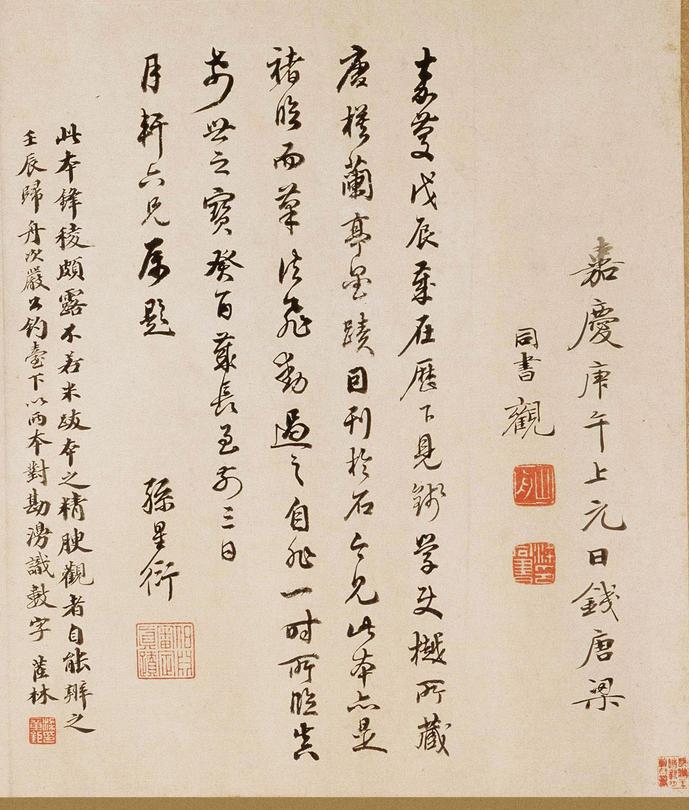 嘉慶庚午上元日錢唐梁
同書觀
嘉慶戊辰歲在歷下見錢學使樾所藏
唐橅蘭亭墨蹟因刊於石今見此本亦是
褚臨而筆法飛動過之自非一時所臨真
希世之寶癸酉歲長至前三日
月軒六兄屬題
孫星衍
此本鋒稜頗露不若米跋本之精腴觀者自能辨之
壬辰歸舟次嚴公釣臺下以兩本對勘漫識數字 茝林